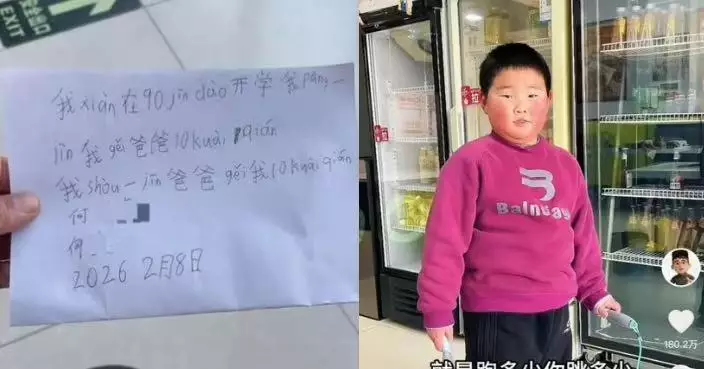 安全出口
EXIT
我xiàn在90jīn dào开学我pàng一
jīn我gěi爸爸10kuài qián
我shòu一jīn爸爸gěi我10kuài qián
何
何
2026 2月8日
拉
拉
Balnbay
180.2万
就是跑多少你跳多少